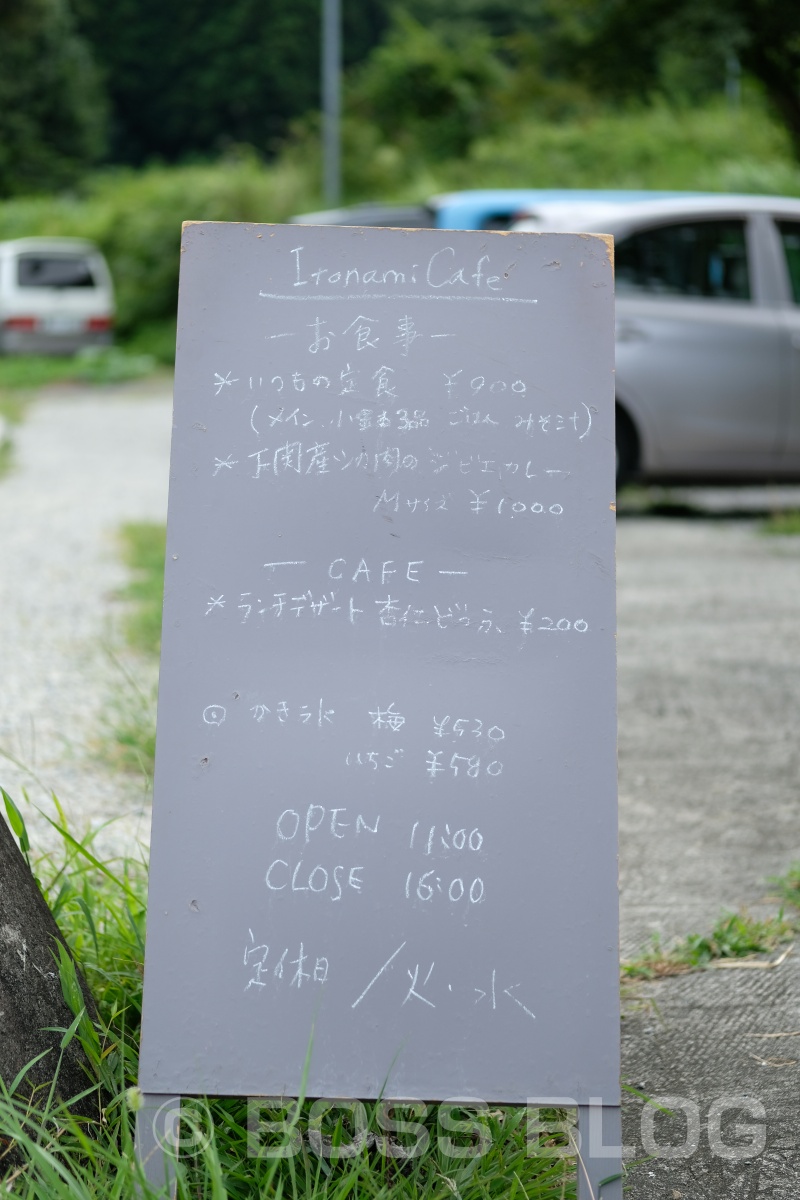 Itonami Cafe
ーお食事ー
＊いつもの定食 ¥900
(メイン、小鉢3品 ごはん みそ汁)
＊下関産シカ肉のジビエカレー
Mサイズ ¥1,000
ー CAFE ー
＊ランチデザート 杏仁どうふ、¥200
◎ かき氷 梅 ¥530
いちご ¥580
OPEN 11:00
CLOSE 16:00
定休日 ／火・水
© BOSS BLOG